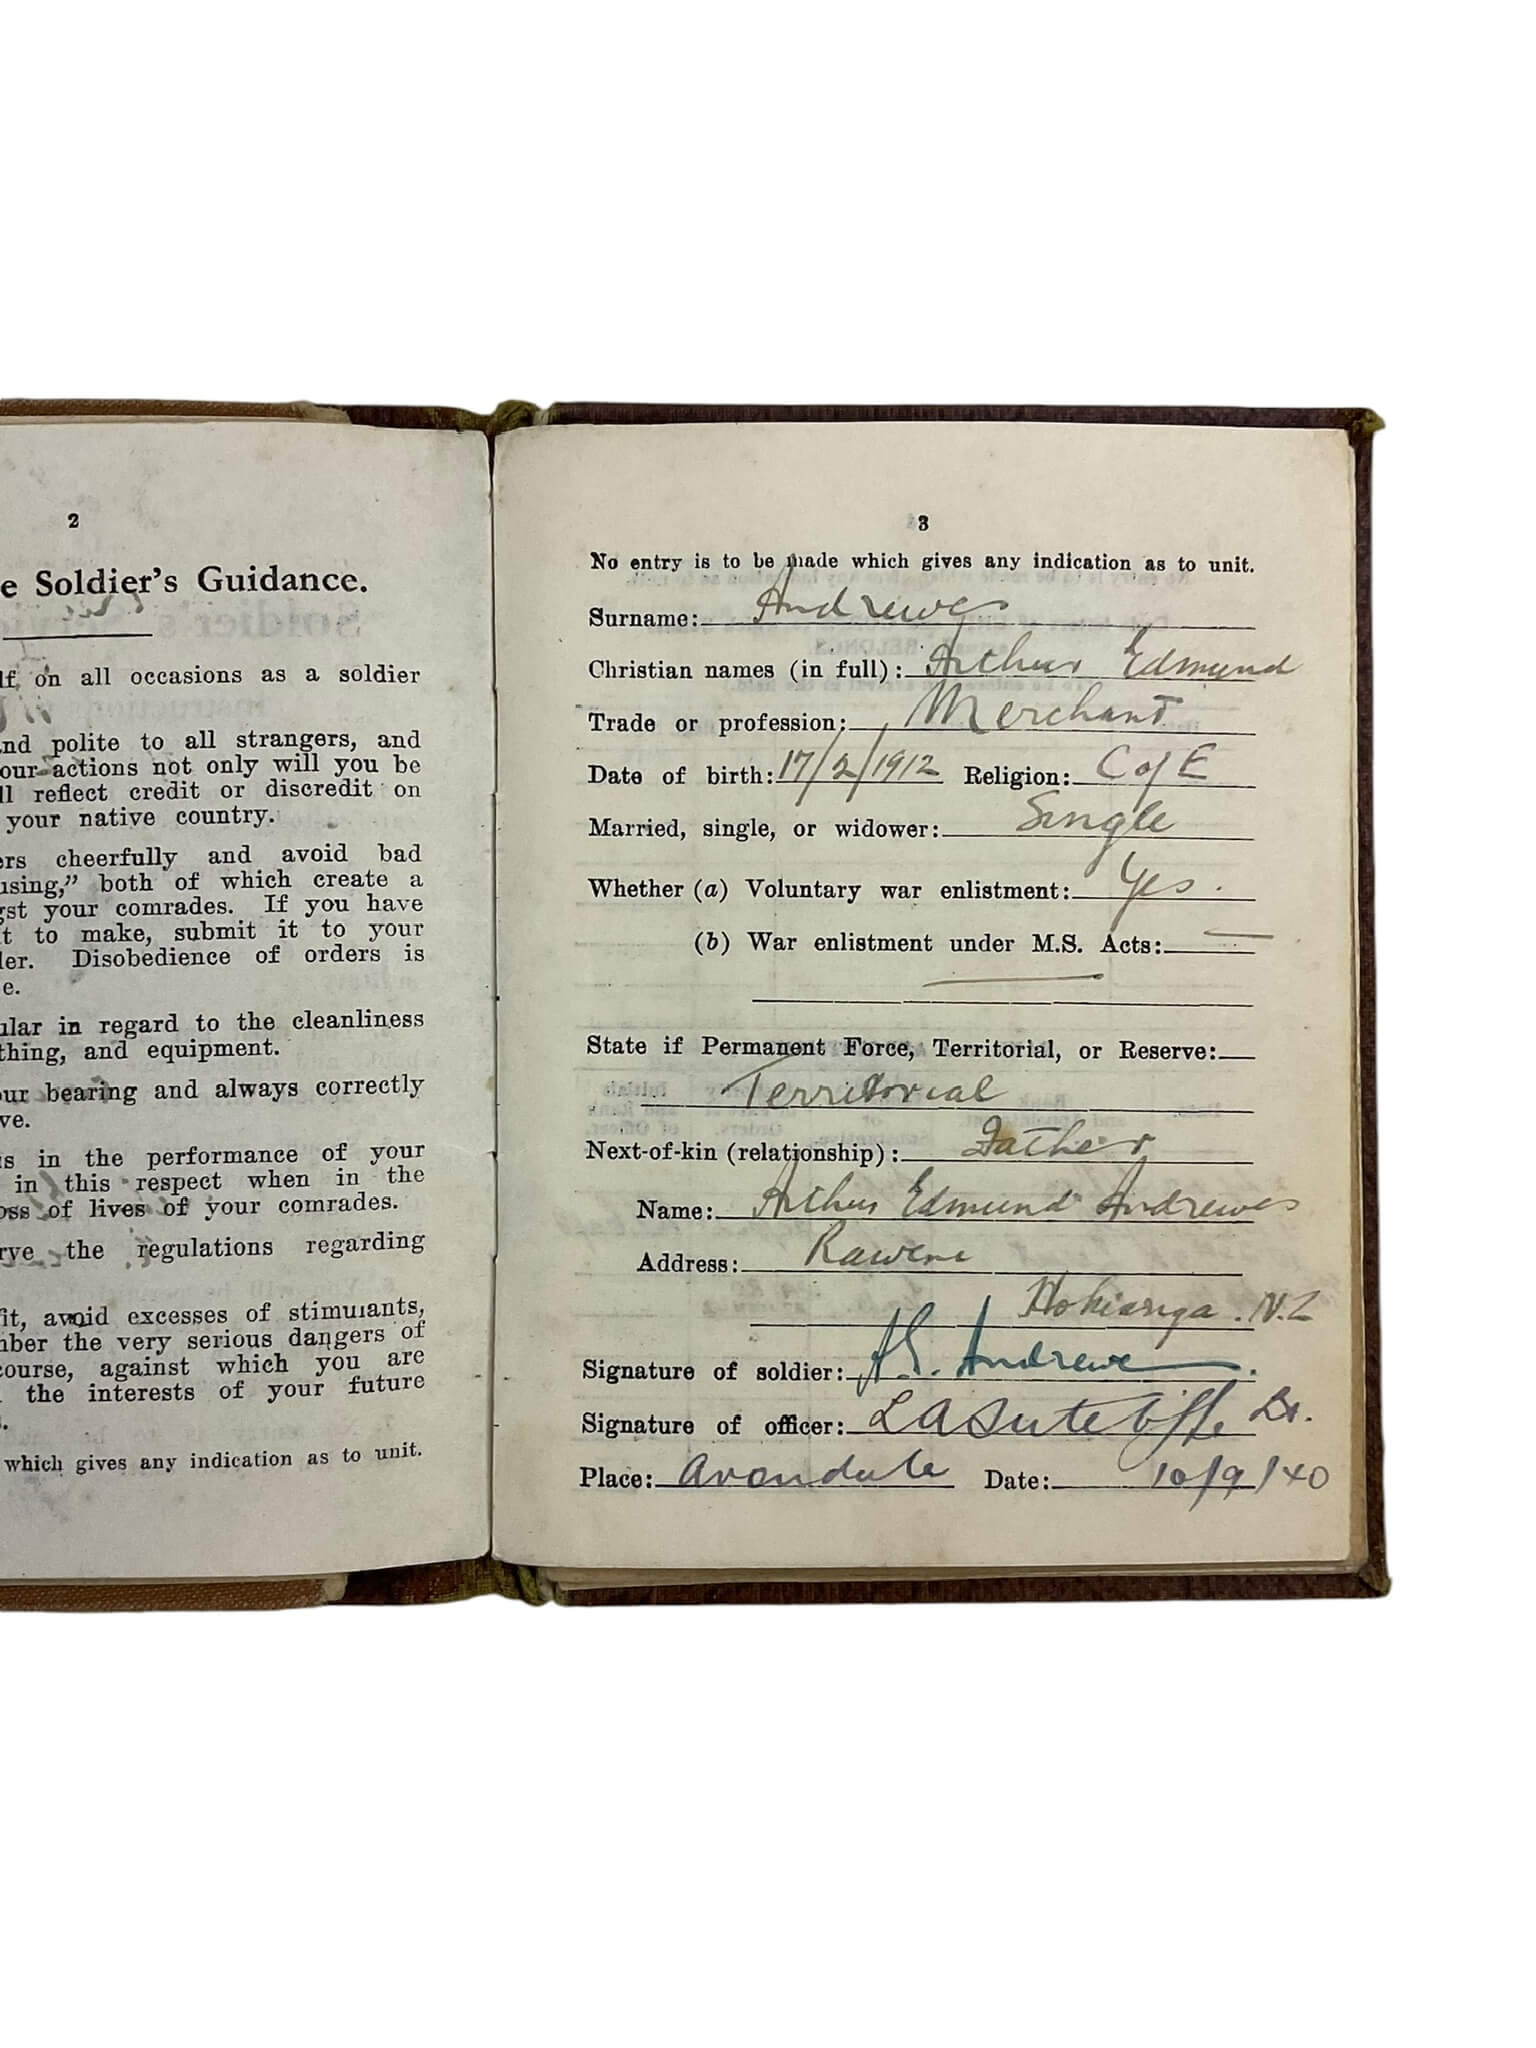 2
e Soldier's Guidance.
lf, on all occasions as a soldier
and polite to all strangers, and
our actions not only will you be
ll reflect credit or discredit on
your native country.
ers cheerfully and avoid bad
using," both of which create a
gst your comrades. If you have
t to make, submit it to your
der. Disobedience of orders is
e.
ular in regard to the cleanliness
thing, and equipment.
our bearing and always correctly
ve.
us in the performance of your
in this respect when in the
oss of lives of your comrades.
rve the regulations regarding
fit, avoid excesses of stimulants,
mber the very serious dangers of
course, against which you are
the interests of your future
s.
which gives any indication as to unit.
3
No entry is to be made which gives any indication as to unit.
Surname: Andrewes
Christian names (in full): Arthur Edmund
Trade or profession: Merchant
Date of birth: 17/2/1912 Religion: C of E
Married, single, or widower: Single
Whether (a) Voluntary war enlistment: Yes.
(b) War enlistment under M.S. Acts: —
State if Permanent Force, Territorial, or Reserve:
Territorial
Next-of-kin (relationship): Father
Name: Arthur Edmund Andrewes
Address: Rawene
Hokianga. N.Z
Signature of soldier: A.E. Andrewes.
Signature of officer: L A Sutcliffe Lt.
Place: Avondale Date: 10/9/40